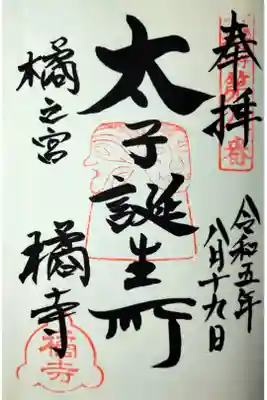 奉拝
令和五年
八月十九日
太子誕生所
橘之宮
橘寺
橘寺